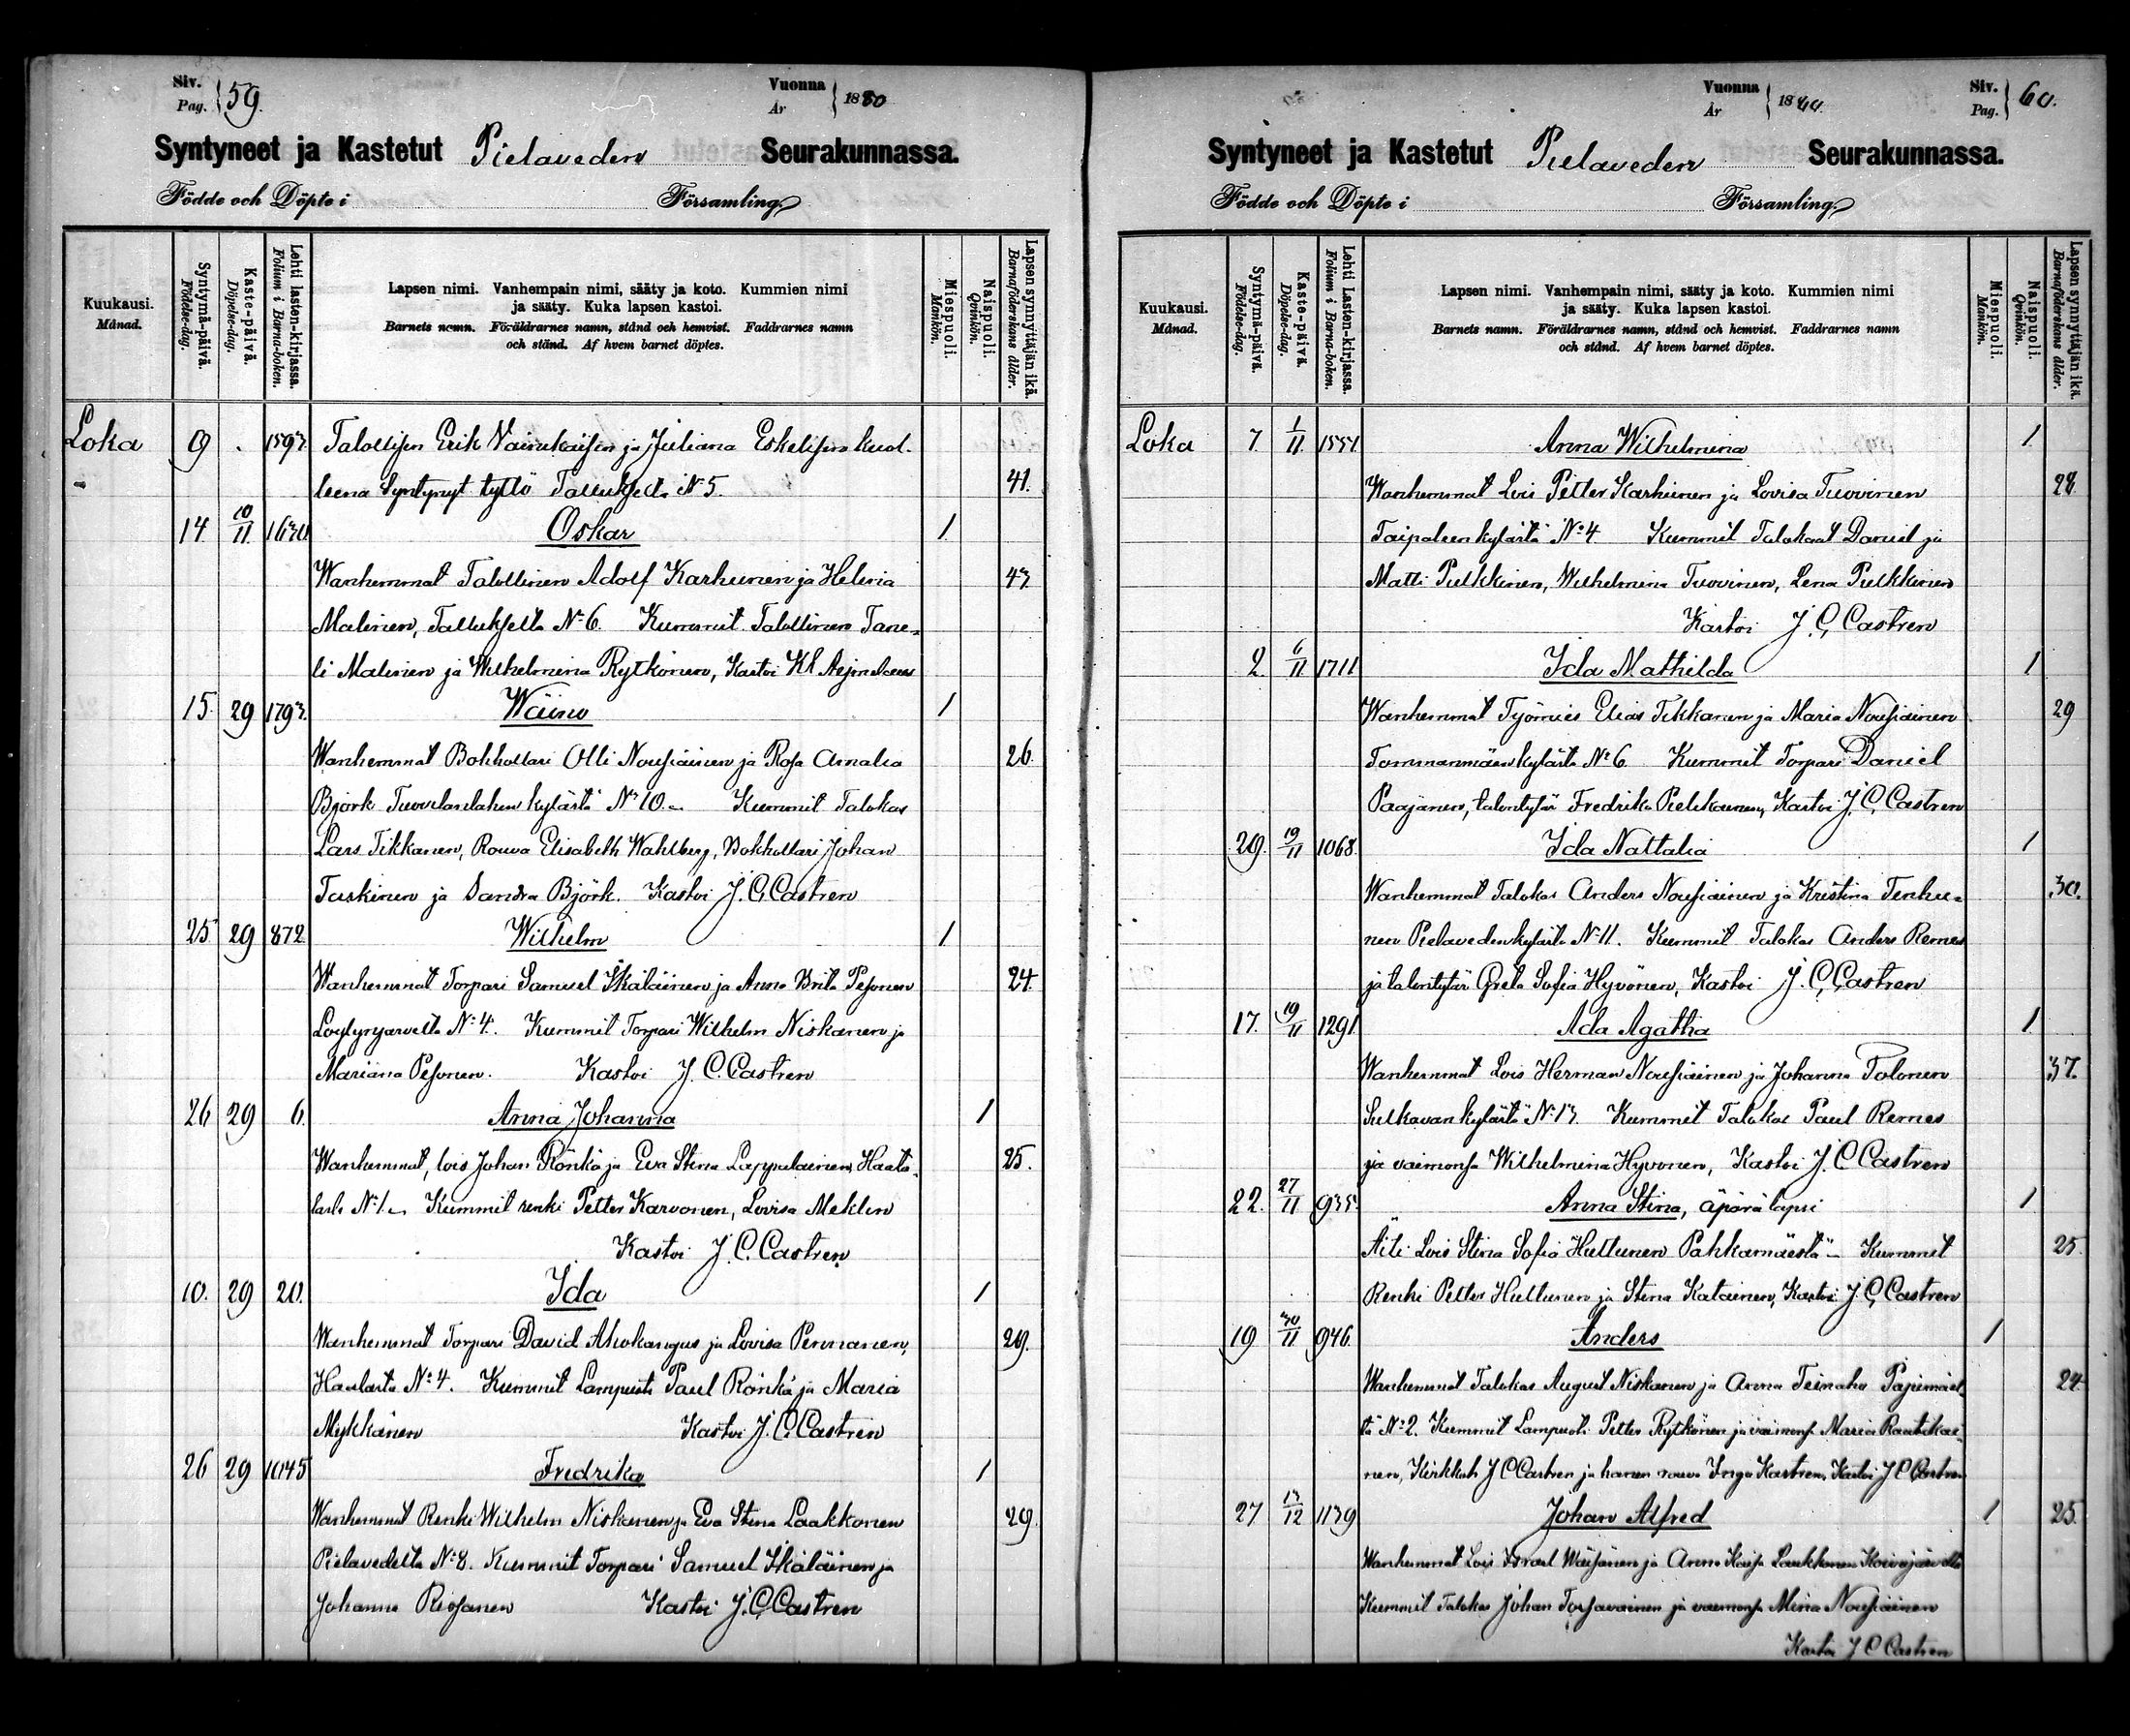 Siv. Pag. 59.
Vuonna År 1880
Syntyneet ja Kastetut Pielaveden Seurakunnassa.
Födde och Döpte i Församling.
Kuukausi. Månad.
Syntymä-päivä. Födelse-dag.
Kaste-päivä. Döpelse-dag.
Lehti lasten-kirjassa. Folium i Barna-boken.
Lapsen nimi. Vanhempain nimi, sääty ja koto. Kummien nimi
ja sääty. Kuka lapsen kastoi.
Barnets namn. Föräldrarnes namn, stånd och hemvist. Faddrarnes namn
och stånd. Af hvem barnet döptes.
Miespuoli. Mankön.
Naispuoli. Qvinkön.
Lapsen synnyttäjän ikä. Barnaföderskans ålder.
Loka 9 . 1593 Talollisen Erik Vainikaisen ja Juliana Eskelisen kuol-
leena Syntynyt tyttö Nº 5. 41.
14 10/11 1630 Oskar 1.
Wanhemmat Talollinen Adolf Karhunen ja Helena 43
Malinen, Nº 6. Kummit Talollinen Tane-
li Malinen ja Wilhelmina Rytkönen, Kastoi
15. 29 1793. Wäinö 1
Wanhemmat Bokhollari Olli Nousiainen ja Rosa Amalia 26.
Björk kylästä Nº 10. Kummit Talokas
Lars Tikkanen, Rouva Elisabeth Wahlberg, Bokhollari Johan
Taskinen ja Sandra Björk. Kastoi J. C. Castren
25. 29 872 Wilhelm 1
Wanhemmat Torpari Samuel Ikäläinen ja Anna Brita Pesonen 24.
Nº 4. Kummit Torpari Wilhelm Niskanen ja
Mariana Pesonen. Kastoi J. C. Castren
26 29 6. Anna Johanna 1
Wanhemmat, lois Johan Rönkä ja Eva Stina Lappalainen, 25.
Nº 1. Kummit renki Petter Karvonen, Lovisa Meklin
Kastoi J. C. Castren
10. 29 20. Ida 1
Wanhemmat Torpari David Ahokangas ja Lovisa Pennanen, 29.
Nº 4. Kummit Lampuoti Paul Rönkä ja Maria
Mykkänen Kastoi J. C. Castren
26 29 1045 Fredrika 1
Wanhemmat Renki Wilhelm Niskanen ja Eva Stina Laakkonen 29.
Pielavedelta Nº 8. Kummit Torpari Samuel Ikäläinen ja
Johanna Kastoi J. C. Castren
Vuonna År 1880.
Siv. Pag. 60.
Syntyneet ja Kastetut Pielaveden Seurakunnassa.
Födde och Döpte i Församling.
Kuukausi. Månad.
Syntymä-päivä. Födelse-dag.
Kaste-päivä. Döpelse-dag.
Lehti Lasten-kirjassa. Folium i Barna-boken.
Lapsen nimi. Vanhempain nimi, sääty ja koto. Kummien nimi
ja sääty. Kuka lapsen kastoi.
Barnets namn. Föräldrarnes namn, stånd och hemvist. Faddrarnes namn
och stånd. Af hvem barnet döptes.
Miespuoli. Mankön.
Naispuoli. Qvinkön.
Lapsen synnyttäjän ikä. Barnaföderskans ålder.
Loka 7. 1/11. 1551 Anna Wilhelmina 1
Wanhemmat Lois Petter Karhunen ja Lovisa Tuovinen 28
Taipaleenkylästä Nº 4 Kummit Talokaat Daniel ja
Matti Pulkkinen, Wilhelmina Tuovinen, Lena Pulkkinen
Kastoi J. C. Castren
2. 6/11 1711 Ida Mathilda 1
Wanhemmat Työmies Elias Tikkanen ja Maria Nousiainen 29
Tommanmäenkylästä Nº 6. Kummit Torpari Daniel
Paajanen, talontytär Fredrika Kastoi J. C. Castren
29. 19/11 1068 Ida Nattalia 1
Wanhemmat Talokas Anders Nousiainen ja Kristina Tenhu- 30.
nen Pielavedenkylästä Nº 11. Kummit Talokas Anders Remes
ja talontytär Greta Sofia Hyvönen, Kastoi J. C. Castren
17. 19/11 1291. Ada Agatha 1.
Wanhemmat Lois Herman Nousiainen ja Johanna Tolonen 37.
Sulkavankylästä Nº 13. Kummit Talokas Paul Remes
ja vaimonsa Wilhelmina Hyvonen, Kastoi J. C Castren
22. 27/11 935. Anna Stina, äpärä lapsi 1
Äiti Lois Stina Sofia Huttunen Pahkamäestä Kummit 25.
Renki Petter Huttunen ja Stina Katainen, Kastoi J. C. Castren
19 30/11 946. Anders 1
Wanhemmat Talokas August Niskanen ja Anna Teinaho 24
tä Nº 2. Kummit Lampuoti Petter Rytkönen ja vaimonsa Maria Rautikai-
nen, J C Castren ja hänen rouva Inga Kastren, Kastoi J C Castren
27 13/12 1139 Johan Alfred 1 25.
Wanhemmat Lois Israel Wäisänen ja Anna Kaisa Laukkanen Koivujärveltä
Kummit Talokas Johan ja vaimonsa Mina Nousiainen
Kastoi J C Castren